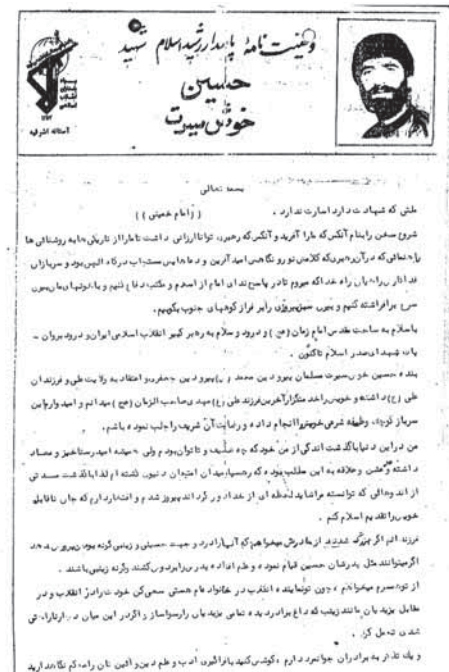 وصیت نامهٔ پاسدار رشید اسلام شهید
حسین
خوش سیرت
آستانه اشرفیه
بسمه تعالی
ملتی که شهادت دارد اسارت ندارد . ((امام خمینی))
شروع سخن را بنام آنکس که مارا آفرید و آنکس که رهبری توانا ارزانی داشت تا مارا از تاریکی ها به روشنائی ها
راهنمائی که در آن رهبری که کلامش نور و نگاهش امید آفرین و دعاهایش مستجاب درگاه الهیس بود و سربازان
فداکار راه خدا که میروم تا در پاسخ ندای امام از اسلام و مکتب دفاع کنیم و با خونهای مان
سرخ برافراشته کنیم و پیروزی را بر فراز کوههای جنوب بکوبیم.
باسلام به ساحت مقدس امام زمان (عج) و درود و سلام به رهبر کبیر انقلاب اسلامی ایران و درود بروان -
پاک شهدای صدر اسلام تاکنون .
بنده حسین خوش سیرت مسلمان پیرو دین محمد پیرو دین جعفری و اعتقاد به ولایت علی و فرزندان
علی (ع) داشته و خویش را خدمتگزار آخرین فرزند علی (ع) مهدی صاحب الزمان (عج) میدانم و امیدوارم این
سرباز کوچک وظیفه شرعی خویش را انجام داده و رضایت آن شریف را جلب نموده باشم.
من در این دنیا با گذشت اندکی از من خود که چه ضعیف و ناتوان بودم ولی همیشه امید رستاخیز و معاد
داشته و عشق و علاقه به این مطلب بوده که رهسپار میدان امتحان دنیوی گشته ام لذا با گذشت مدتی
از اندوهائی که توانسته مرا شاید لحظه ای از خدا دور گرداند پیروز شدم و افتخار دارم که جان ناقابل
خویش را تقدیم اسلام کنم .
فرزندانم اگر بزرگ شدند از مادرش میخواهم که آنها را در جهت حسینی و زینبی گونه بودن پرورش دهد
اگر میتوانند مثل پدرشان حسین قیام نموده و علم افتاده پدرش را بردوش کشند وگرنه زینبی باشند .
از تو همسرم میخواهم چون تو نماینده انقلاب در خانواده ام هستی سعی کن خودت را در انقلاب و در
مقابل یزیدیان مانند زینب که داغ برادر دیده تمامی یزیدیان را رسوا سازد و اگر در این میان دچار ناراحتی
شدی تحمل کن .
و یک تذکر به برادران جوانمرد دارم کوشش کنید با فراگیری ادب و علم دین و آئین تان را محکم نگاهدارید